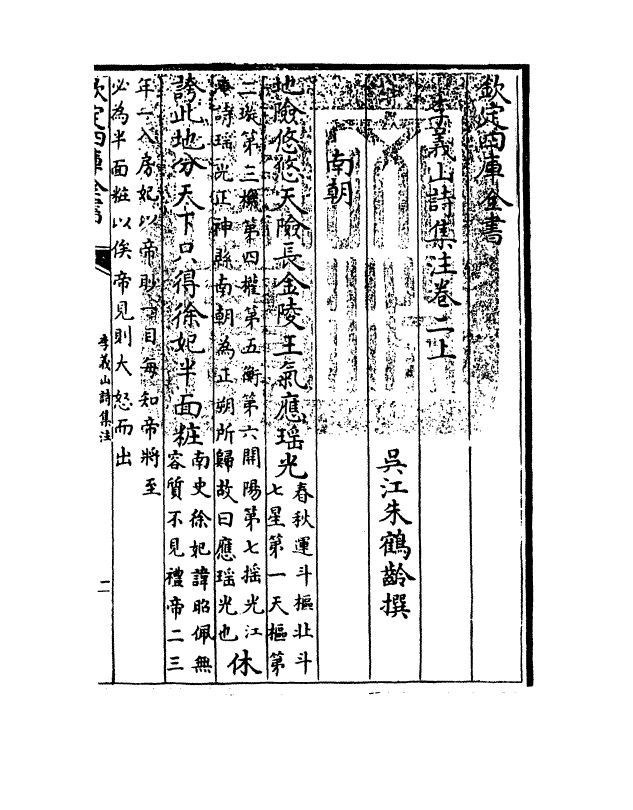 欽定四庫全書
李義山詩集注卷二上
吳江朱鶴齡撰
南朝
地險悠悠天險長金陵王氣應瑤光
春秋運斗樞北斗
七星第一天樞第
二璇第三機第四權第五衡第六開陽第七搖光江
詩瑤光正神縣南朝為正朔所歸故曰應瑤光也
休
誇此地分天下只得徐妃半面粧
南史徐妃諱昭佩無
容質不見禮帝二三
年一入房妃以帝眇一目每知帝將至
必為半面粧以俟帝見則大怒而出
欽定四庫全書
李義山詩集注
二